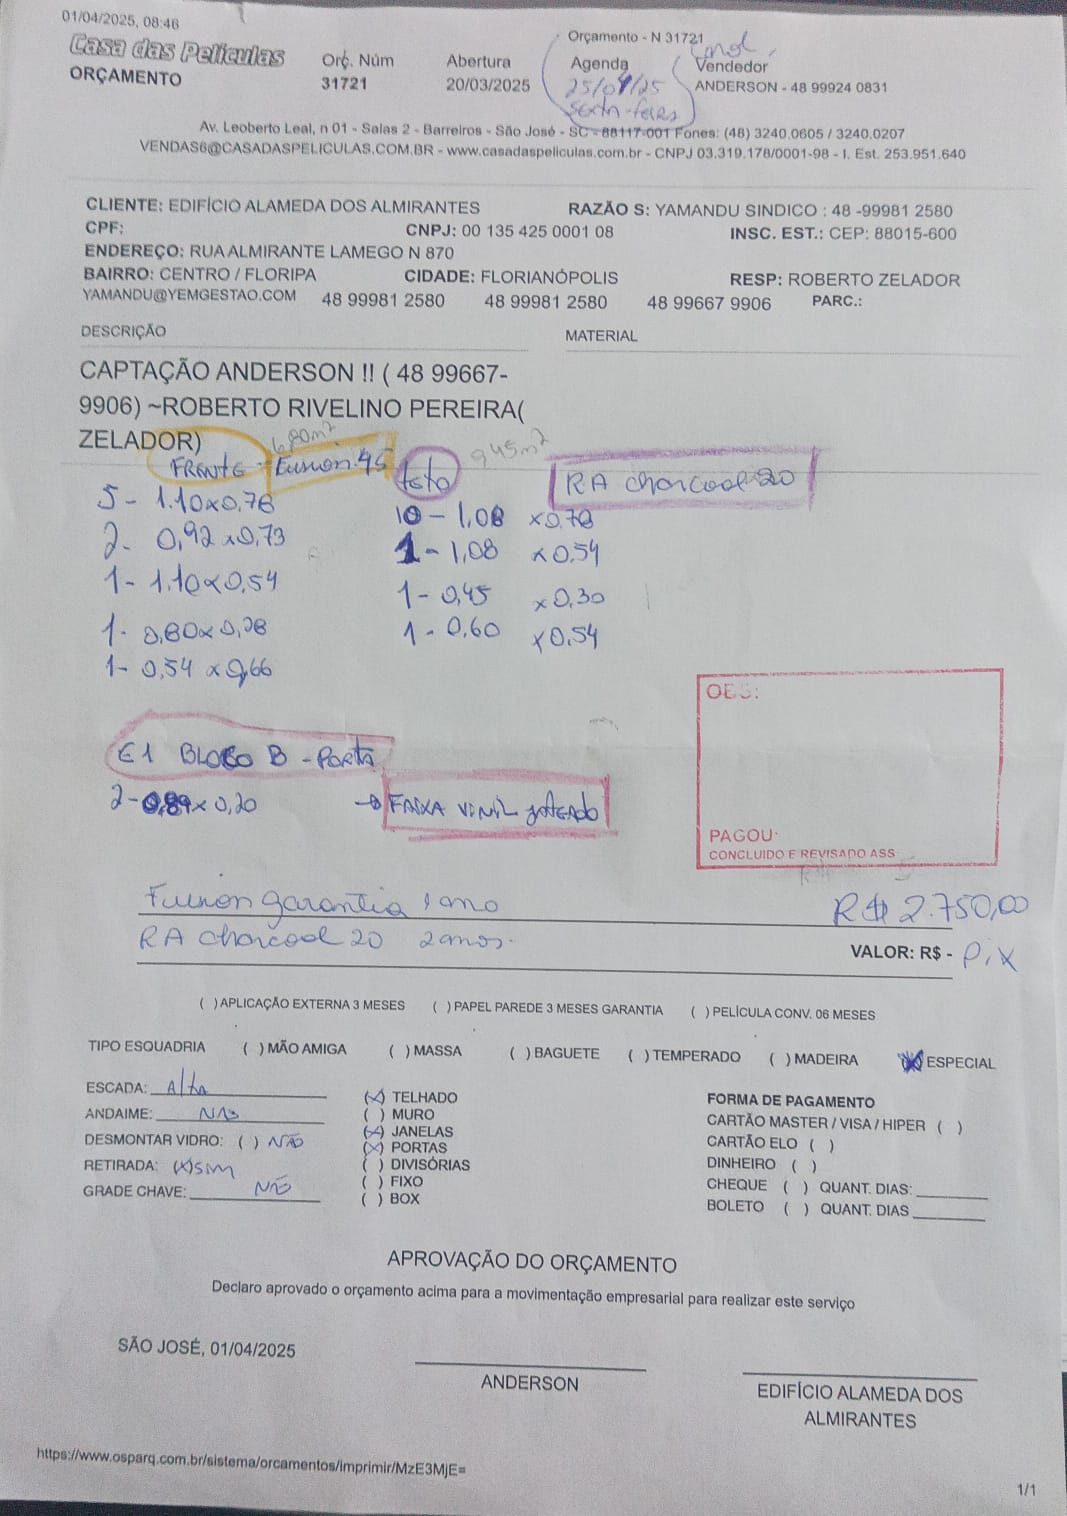 01/04/2025, 08:46
Orçamento - N 31721
Casa das Películas
ORÇAMENTO
Orç. Núm
31721
Abertura
20/03/2025
Agenda
25/04/25
sexta-feira
Vendedor
ANDERSON - 48 99924 0831
Av. Leoberto Leal, n 01 - Salas 2 - Barreiros - São José - SC - 88117-001 Fones: (48) 3240.0605 / 3240.0207
VENDAS6@CASADASPELICULAS.COM.BR - www.casadaspeliculas.com.br - CNPJ 03.319.178/0001-98 - I. Est. 253.951.640
CLIENTE: EDIFÍCIO ALAMEDA DOS ALMIRANTES RAZÃO S: YAMANDU SINDICO : 48 -99981 2580
CPF: CNPJ: 00 135 425 0001 08 INSC. EST.: CEP: 88015-600
ENDEREÇO: RUA ALMIRANTE LAMEGO N 870
BAIRRO: CENTRO / FLORIPA CIDADE: FLORIANÓPOLIS RESP: ROBERTO ZELADOR
YAMANDU@YEMGESTAO.COM 48 99981 2580 48 99981 2580 48 99667 9906 PARC.:
DESCRIÇÃO MATERIAL
CAPTAÇÃO ANDERSON !! ( 48 99667-
9906) ~ROBERTO RIVELINO PEREIRA(
ZELADOR)
6,80m² 9,45m²
FRENTE - Fusion 45 teto RA charcool 20
5 - 1.10x0,78 10 - 1,08 x0,78
2- 0,92 x0,73 1 - 1,08 x0,54
1- 1.10x0,54 1 - 0,45 x0,30
1- 0,80x0,28 1 - 0,60 x0,54
1- 0,54 x0,66
OBS:
E1 BLOCO B - PORTA
2-0,89x0,20 → FAIXA VINIL JATEADO
PAGOU:
CONCLUIDO E REVISADO ASS
Fusion garantia 1 ano R$ 2.750,00
RA charcool 20 2 anos.
VALOR: R$ - Pix
( ) APLICAÇÃO EXTERNA 3 MESES ( ) PAPEL PAREDE 3 MESES GARANTIA ( ) PELÍCULA CONV. 06 MESES
TIPO ESQUADRIA ( ) MÃO AMIGA ( ) MASSA ( ) BAGUETE ( ) TEMPERADO ( ) MADEIRA (X) ESPECIAL
ESCADA: Alta
ANDAIME: NÃO
DESMONTAR VIDRO: ( ) NÃO
RETIRADA: (x) sim
GRADE CHAVE: NÃO
(x) TELHADO
( ) MURO
(x) JANELAS
(x) PORTAS
( ) DIVISÓRIAS
( ) FIXO
( ) BOX
FORMA DE PAGAMENTO
CARTÃO MASTER / VISA / HIPER ( )
CARTÃO ELO ( )
DINHEIRO ( )
CHEQUE ( ) QUANT. DIAS:
BOLETO ( ) QUANT. DIAS
APROVAÇÃO DO ORÇAMENTO
Declaro aprovado o orçamento acima para a movimentação empresarial para realizar este serviço
SÃO JOSÉ, 01/04/2025
ANDERSON
EDIFÍCIO ALAMEDA DOS
ALMIRANTES
https://www.osparq.com.br/sistema/orcamentos/imprimir/MzE3MjE=
1/1